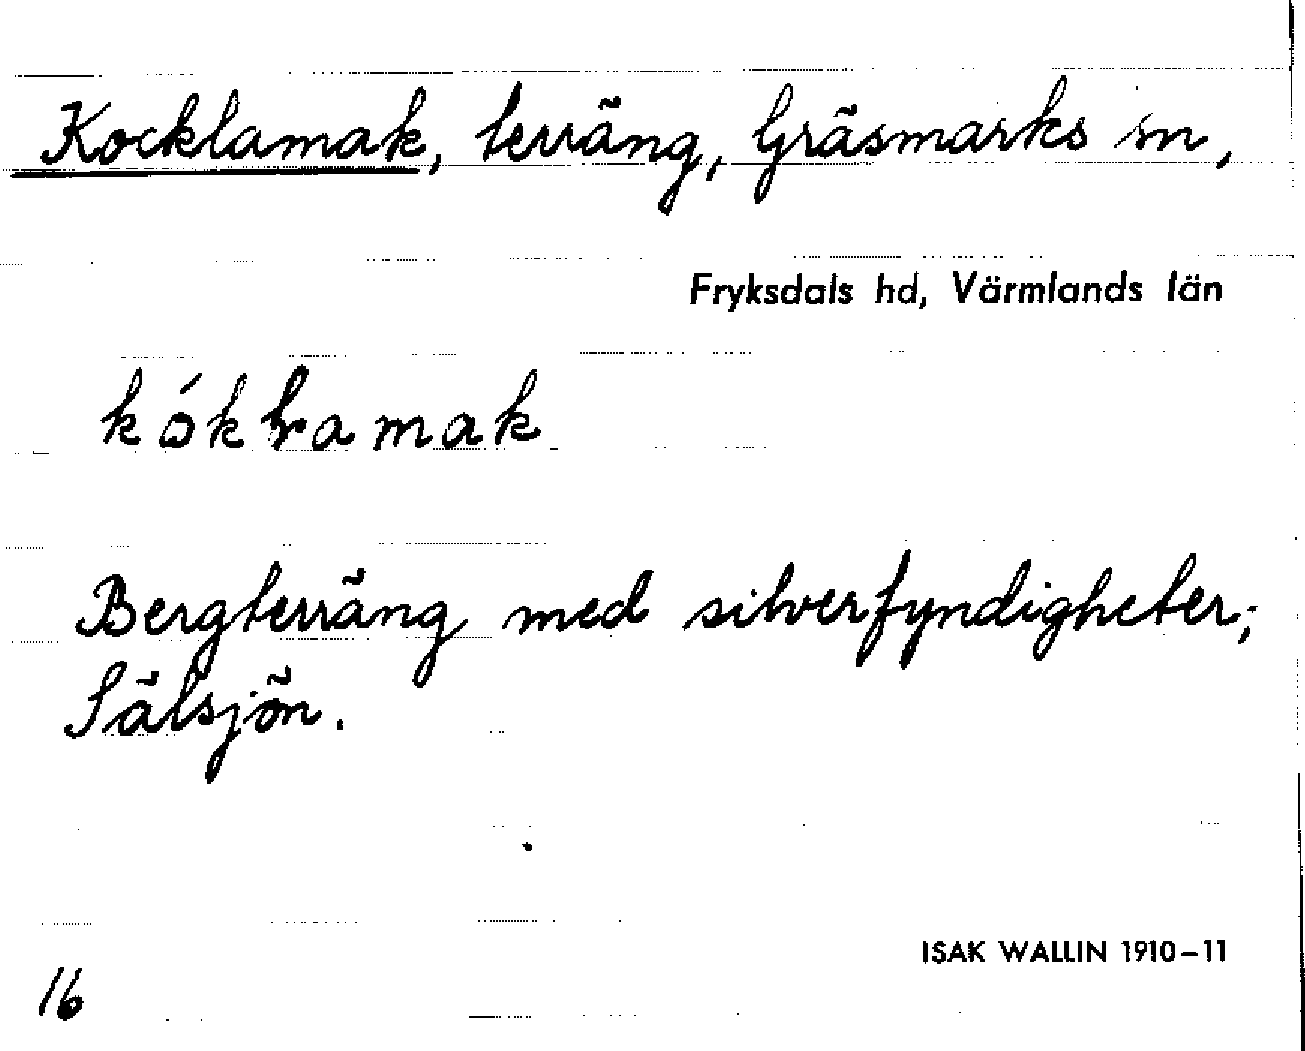 Kocklamak, terräng, Gräsmarks sn,
Fryksdals hd, Värmlands län
Bergterräng med silverfyndigheter;
Sälsjön.
ISAK WALLIN 1910–11
16